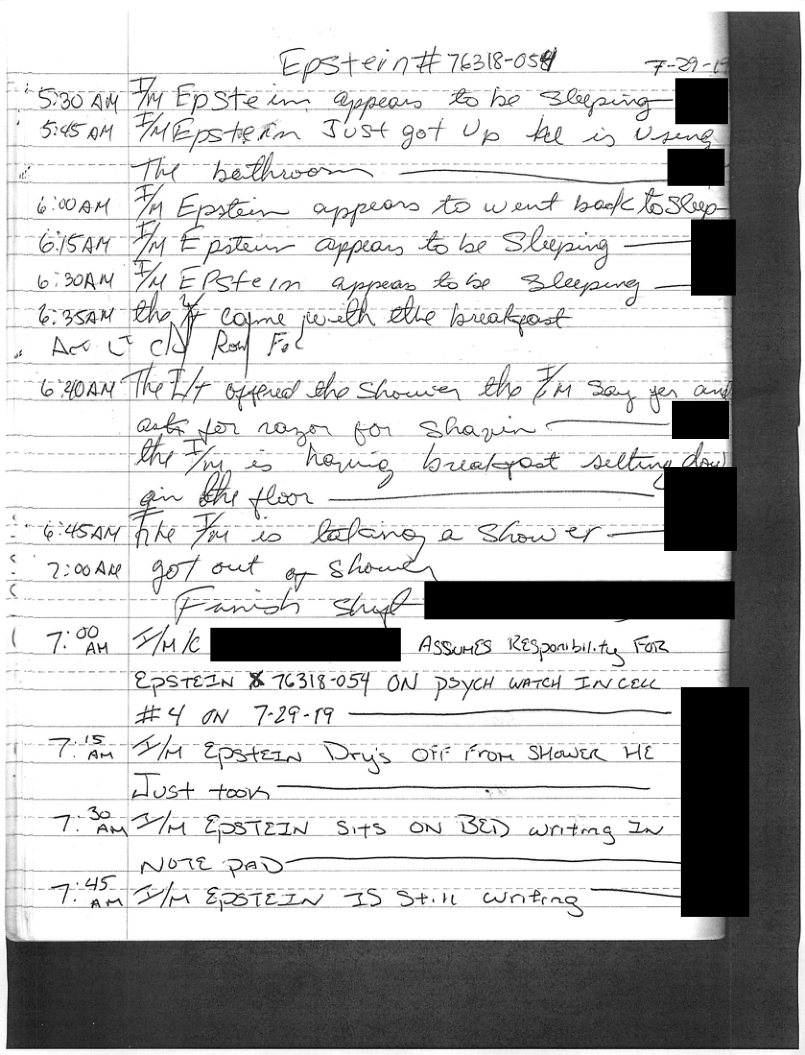 Epstein # 76318-054 7-29-19
5:30 AM I/M Epstein appears to be sleeping
5:45 AM I/M Epstein Just got up he is using
The bathroom
6:00 AM I/M Epstein appears to went back to sleep
6:15 AM I/M Epstein appears to be sleeping
6:30 AM I/M EPstein appears to be sleeping
6:35 AM the came with the breakfast
6:40 AM The offered the shower the I/M say yes and
ask for razor for shavin
the I/M is having breakfast setting down
in the floor
6:45 AM the I/M is taking a shower
7:00 AM got out of shower
Fanish shift
7:00 AM I/M/C ASSUMES Responibility FOR
EPSTEIN 76318-054 ON PSYCH WATCH IN CELL
#4 ON 7-29-19
7:15 AM I/M EpstEIN Dry's Off From SHOWER HE
Just took
7:30 AM I/M EPSTEIN Sits ON BED writing IN
NOTE PAD
7:45 AM I/M EPSTEIN IS Still writing